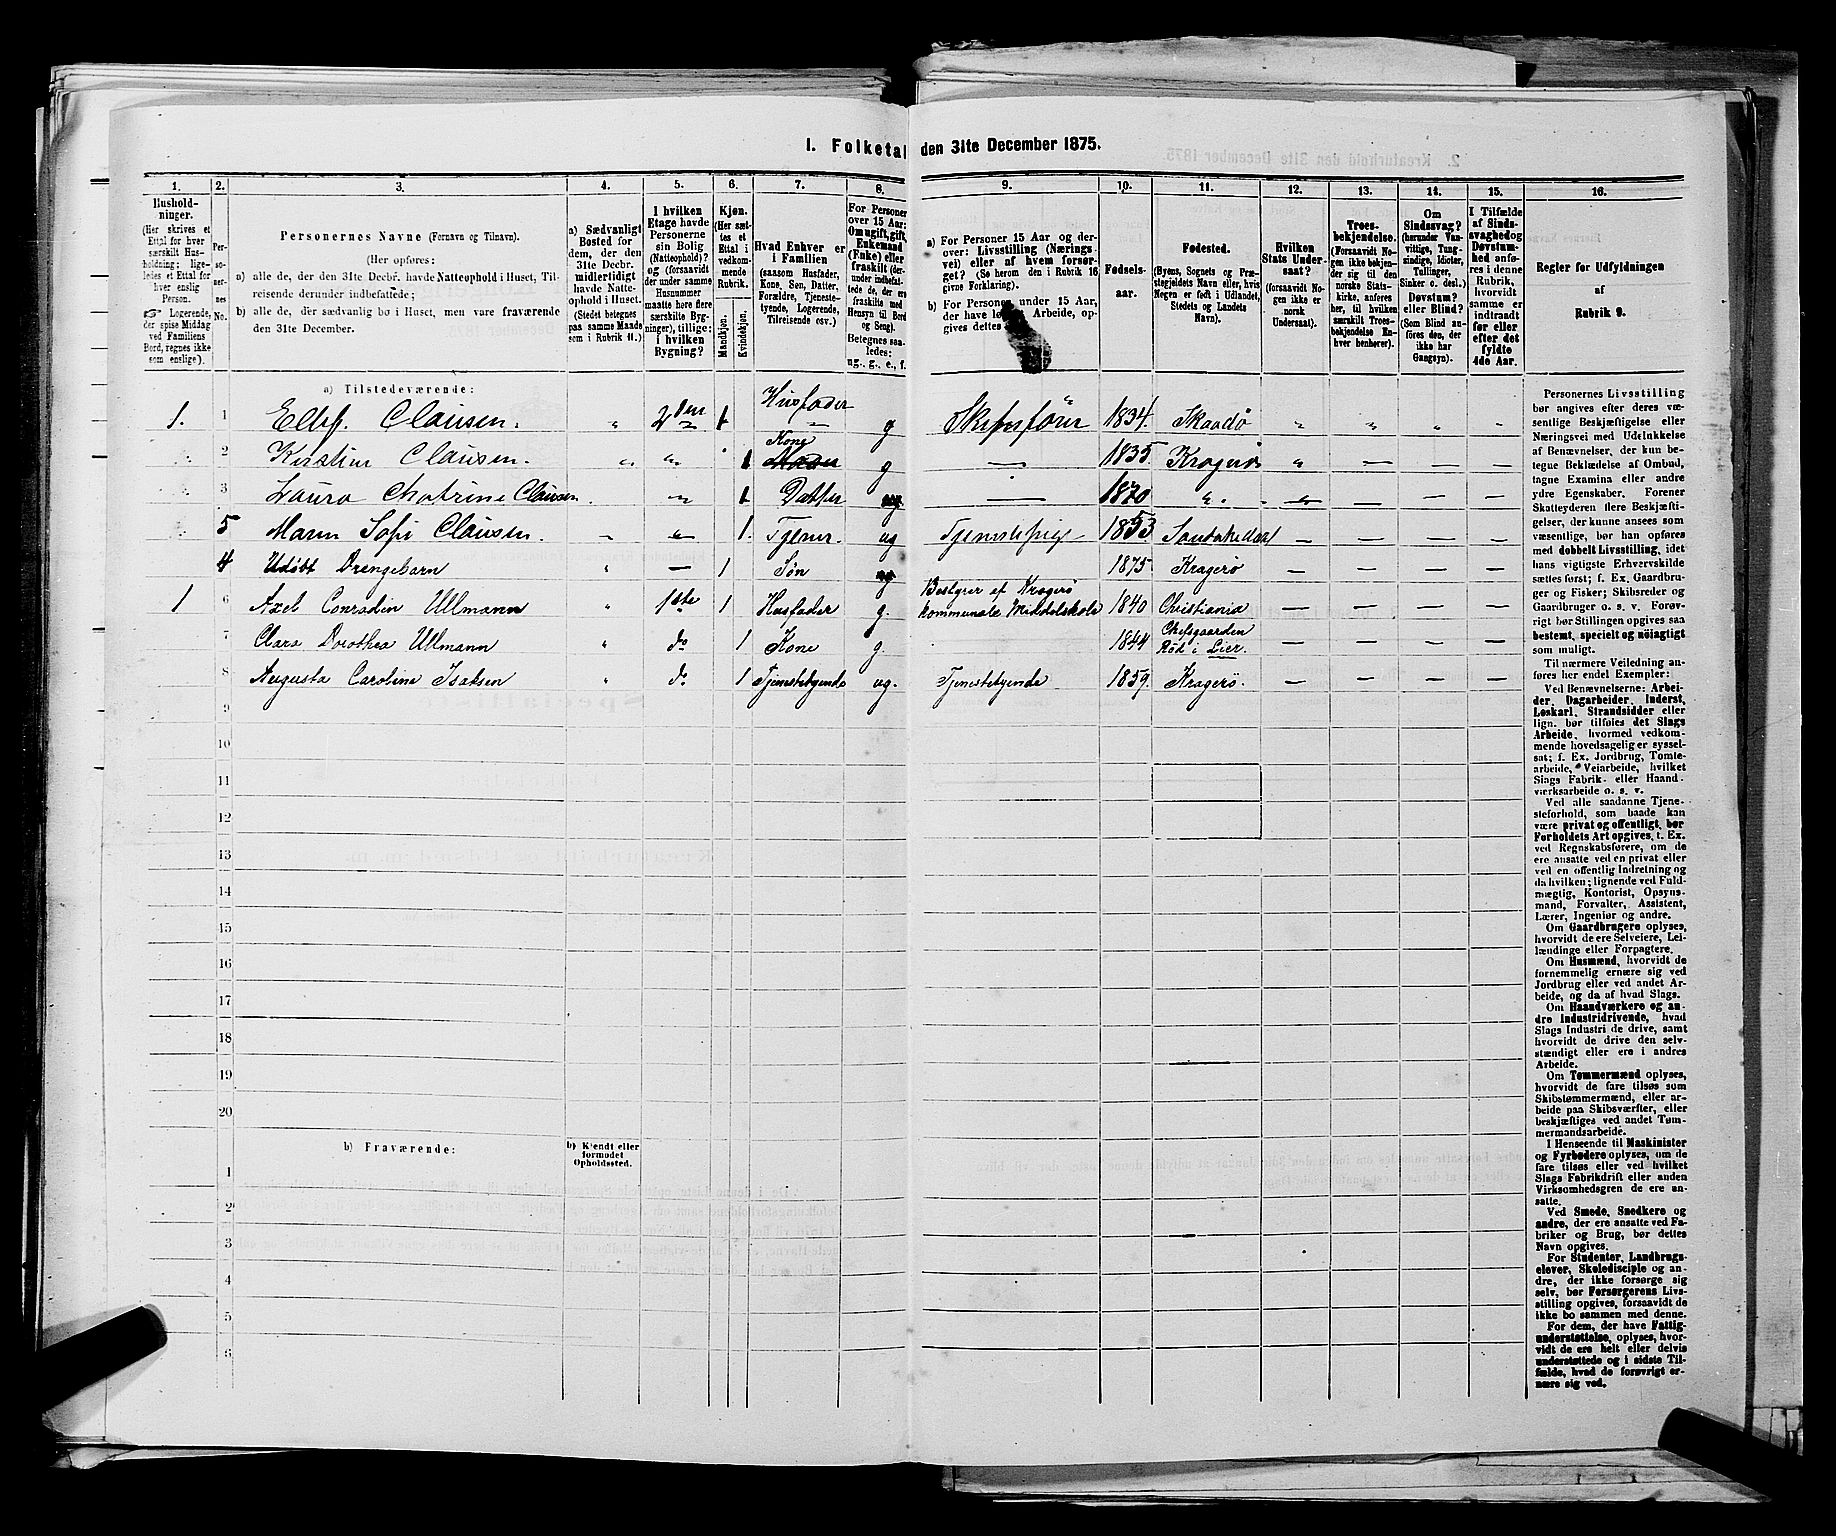 1. Folketal den 31te December 1875.
1. 2. 3. 4. 5. 6. 7. 8. 9. 10. 11. 12. 13. 14. 15. 16.
Hushold-
ninger.
(Her skrives et
Ettal for hver
særskilt Hus-
holdning; lige-
ledes et Ettal for
hver enslig
Person.
Logerende,
der spise Middag
ved Familiens
Bord, regnes ikke
som enslige).
Per-
so-
ner-
nes
No.
Personernes Navne (Fornavn og Tilnavn).
(Her opføres:
a) alle de, der den 31te Decbr. havde Natteophold i Huset, Til-
reisende derunder indbefattede;
b) alle de, der sædvanlig bo i Huset, men vare fraværende
den 31te December.
a) Sædvanligt
Bosted for
dem, der den
31te Decbr.
midlertidigt
havde Natte-
ophold i Huset.
(Stedet betegnes
paa samme Maade
som i Rubrik 11.)
I hvilken
Etage havde
Personerne
sin Bolig
(Natteophold)?
og (forsaavidt
der under samme
Husnummer
maatte høre flere
særskilte Byg-
ninger), tillige:
i hvilken
Bygning?
Kjøn.
(Her sæt-
tes et
Ettal i
vedkom-
mende
Rubrik.
Mandkjøn.
Kvindekjøn.
Hvad Enhver er
i Familien
(saasom Husfader,
Kone, Søn, Datter,
Forældre, Tjeneste-
tyende, Logerende,
Tilreisende osv.)
For Personer
over 15 Aar:
Om ugift, gift,
Enkemand
(Enke) eller
fraskilt (der-
under indbefat-
tede de, der ere
fraskilte med
Hensyn til Bord
og Seng).
Betegnes saa-
ledes:
ug., g., e., f.
a) For Personer 15 Aar og der-
over: Livsstilling (Nærings-
vei) eller af hvem forsør-
get? (Se herom den i Rubrik 16
givne Forklaring).
b) For Personer under 15 Aar,
der have Arbeide, op-
gives dettes
Fødsels-
aar.
Fødested.
(Byens, Sognets og Præ-
stegjeldets Navn eller, hvis
Nogen er født i Udlandet,
Stedets og Landets
Navn).
Hvilken
Stats Under-
saat?
(forsaavidt No-
gen ikke er
norsk
Undersaat).
Troes-
bekjendelse.
(Forsaavidt No-
gen ikke bekjen-
der sig til den
norske Stats-
kirke, anføres
her, til hvilken
særskilt Troes-
bekjendelse En-
hver henhører).
Om
Sindssvag?
(herunder Van-
vittige, Tung-
sindige, Idioter,
Tullinger,
Sinker o. desl.)
Døvstum?
eller Blind?
(Som Blind an-
føres den, der
ikke har
Gangsyn).
I Tilfælde
af Sinds-
svaghed og
Døvstum-
hed anfø-
res i denne
Rubrik,
hvorvidt
samme er
indtraadt
før eller
efter det
fyldte
4de Aar.
Regler for Udfyldningen
af
Rubrik 9.
a) Tilstedeværende:
1. 1 Ellef. Clausen. " 2den 1 Husfader g Skibsfører 1834. Skaadø " " " "
2 Kirstine Clausen. " " 1 Kone g — 1835 Kragerø " — — —
3 Laura Chatrine Clausen " 1 Datter — 1870 " — — —
5 Maren Sofi Clausen " " 1. Tjener. ug Tjenestepige 1853 Sandøkedal — — — —
4 Udøbt Drengebarn " — 1 Søn 1875 Kragerø — — — —
1 6 Axel Conradin Ullmann " 1ste 1 Husfader g. Bestyrer af Kragerø kommunale Middelskole 1840 Christiania — — — —
7 Clara Dorothea Ullmann " do 1 Kone g. 1844 Chefsgaarden Rød i Lier. — — — —
8 Augusta Caroline Isaksen " do 1 Tjenestetyende ug. Tjenestetyende 1859. Kragerø. — — — —
9
10
11
12
13
14
15
16
17
18
19
20
b) Fraværende:
b) Kjendt eller
formodet
Opholdssted.
1
2
3
4
5
6
Personernes Livsstilling
bør angives efter deres væ-
sentlige Beskjæftigelse eller
Næringsvei med Udelukkelse
af Benævnelser, der kun be-
tegne Beklædelse af Ombud,
tagne Examina eller andre
ydre Egenskaber. Forener
Skatteyderen flere Beskjæfti-
gelser, der kunne ansees som
væsentlige, bør han opføres
med dobbelt Livsstilling, idet
hans vigtigste Erhvervskilde
sættes først; f. Ex. Gaardbru-
ger og Fisker; Skibsreder og
Gaardbruger o. s. v. Forøv-
rigt bør Stillingen opgives saa
bestemt, specielt og nöiagtigt
som muligt.
Til nærmere Veiledning an-
føres her endel Exempler:
Ved Benævnelserne: Arbei-
der, Dagarbeider, Inderst,
Løskarl, Strandsidder eller
lign. bør tilføies det Slags
Arbeide, hvormed vedkom-
mende hovedsagelig er syssel-
sat; f. Ex. Jordbrug, Tomte-
arbeide, Veiarbeide, hvilket
Slags Fabrik- eller Haand-
værksarbeide o. s. v.
Ved alle saadanne Tjene-
steforhold, som baade kan
være privat og offentligt, bør
Forholdets Art opgives, t. Ex.
ved Regnskabsførere, om de
ere ansatte ved en privat eller
ved en offentlig Indretning og
da hvilken; lignende ved Fuld-
mægtig, Kontorist, Opsyns-
mand, Forvalter, Assistent,
Lærer, Ingeniør og andre.
Om Gaardbrugere oplyses,
hvorvidt de ere Selveiere, Lei-
lændinge eller Forpagtere.
Om Husmænd, hvorvidt de
fornemmelig ernære sig ved
Jordbrug eller ved andet Ar-
beide, og da af hvad Slags.
Om Haandværkere og an-
dre Industridrivende, hvad
Slags Industri de drive, samt
hvorvidt de drive den selv-
stændigt eller ere i andres
Arbeide.
Om Tømmermænd oplyses,
hvorvidt de fare tilsøs som
Skibstømmermænd, eller ar-
beide paa Skibsværfter, eller
beskjæftiges ved andet Tøm-
mermandsarbeide.
I Henseende til Maskinister
og Fyrbødere oplyses, om de
fare tilsøs eller ved hvilket
Slags Fabrikdrift eller anden
Virksomhedsgren de ere an-
satte.
Ved Smede, Snedkere og
andre, der ere ansatte ved Fa-
briker og Brug, bør dettes
Navn opgives.
For Studenter, Landbrugs-
elever, Skoledisciple og an-
dre, der ikke forsørge sig
selv, bør Forsørgerens Livs-
stilling opgives, forsaavidt de
ikke bo sammen med denne.
For dem, der have Fattig-
understøttelse, oplyses, hvor-
vidt de ere helt eller delvis
understøttede og i sidste Til-
fælde, hvad de forøvrigt er-
nære sig ved.